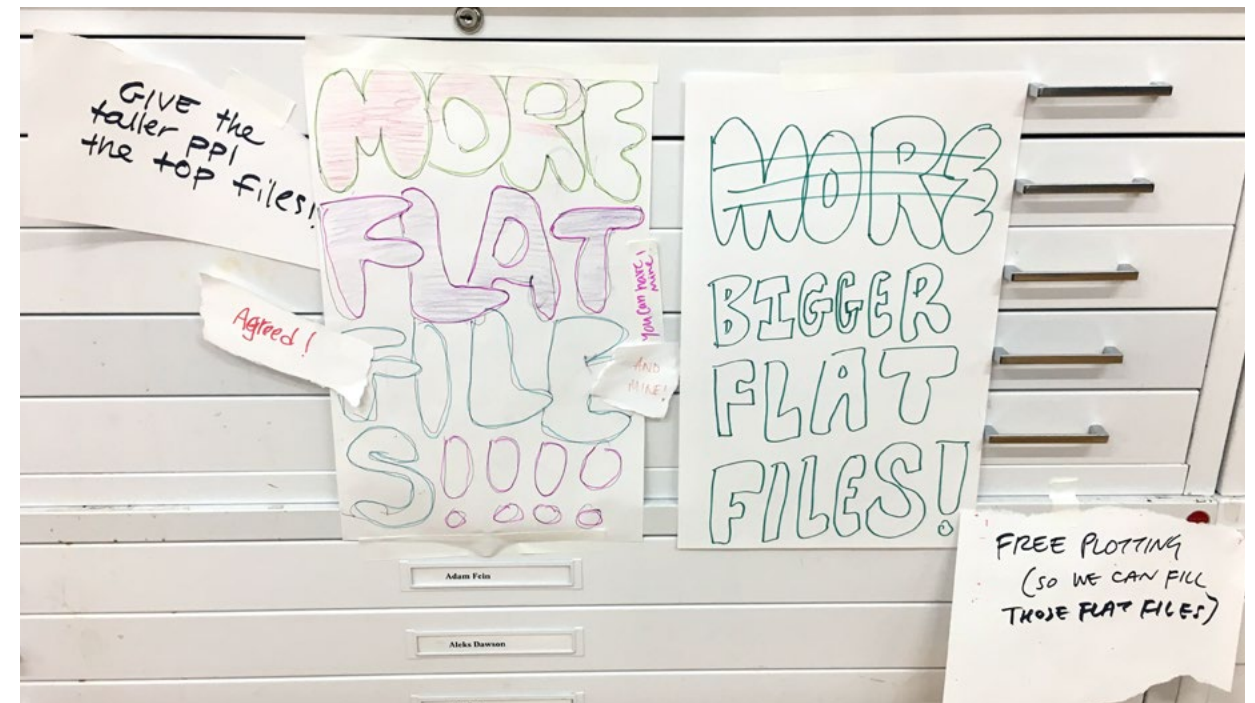 GIVE the
taller PPl
the top files!
Agreed!
MORE
FLAT
FILE
S!!!!
you can have
mine!
AND
MINE!
MORE
BIGGER
FLAT
FILES!
FREE PLOTTING
(SO WE CAN FILL
THOSE FLAT FILES)
Adam Fein
Aleks Dawson